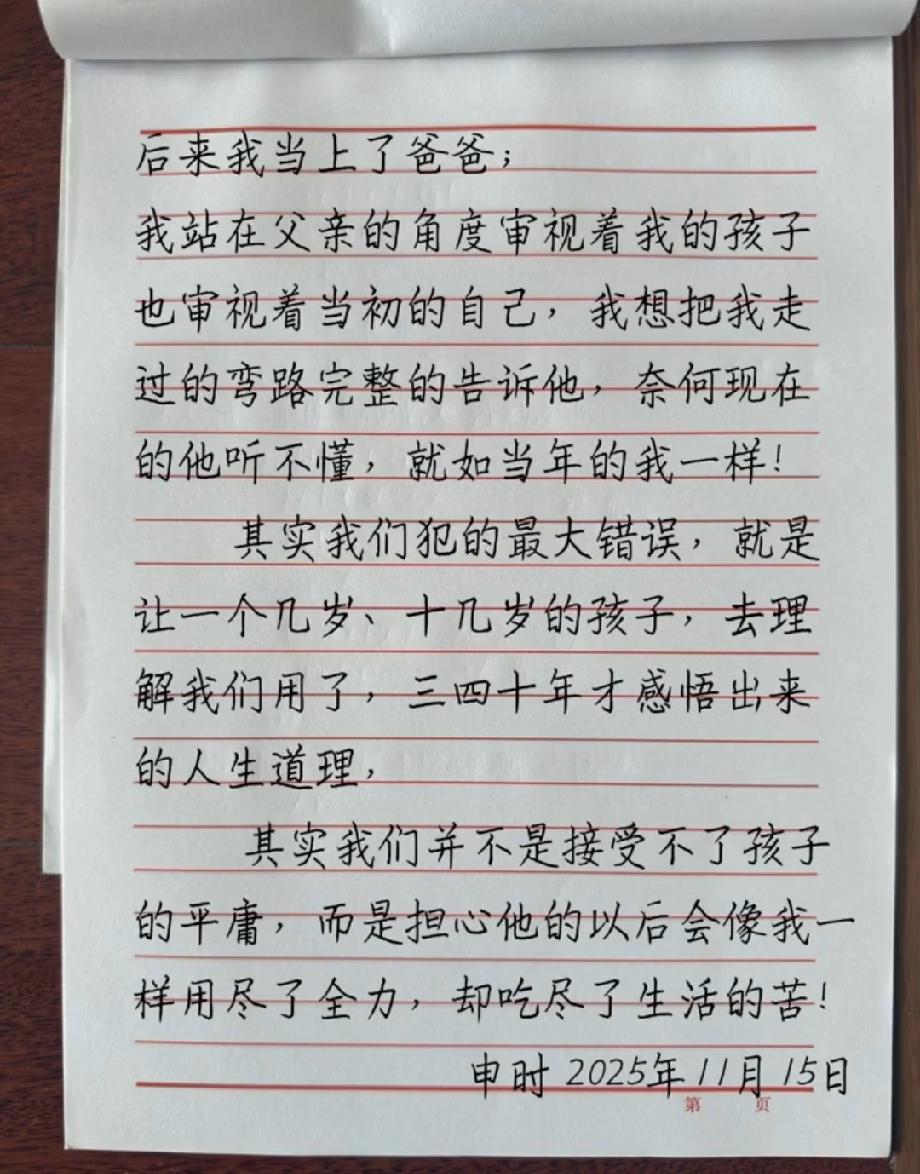 后来我当上了爸爸;
我站在父亲的角度审视着我的孩子
也审视着当初的自己，我想把我走
过的弯路完整的告诉他，奈何现在
的他听不懂，就如当年的我一样！
其实我们犯的最大错误，就是
让一个几岁、十几岁的孩子，去理
解我们用了，三四十年才感悟出来
的人生道理，
其实我们并不是接受不了孩子
的平庸，而是担心他的以后会像我一
样用尽了全力，却吃尽了生活的苦！
申时 2025年11月15日
第 页